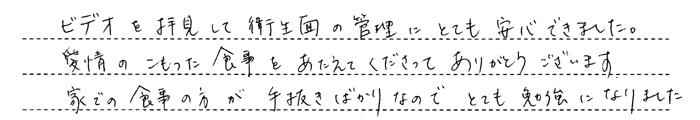 ビデオを拝見して衛生面の管理にとても安心できました。
愛情のこもった食事をあたえてくださってありがとうございます
家での食事の方が手抜きばかりなのでとても勉強になりました